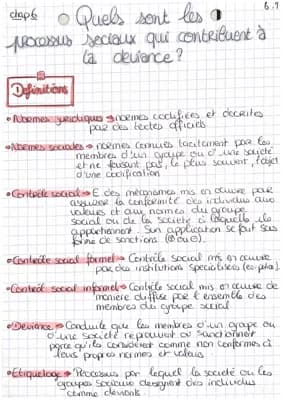 chap6
6.1
Quels sont les
processus sociaux qui contribuent à
la déviance?
Définitions
• Normes juridiques → normes codifiées et décrites
par des textes officiels
• Normes sociales → normes connues tacitement par les
membres d'un groupe ou d'une société
et ne faisant pas, le plus souvent, l'objet
d'une codification
• Contrôle social → E des mécanismes mis en œuvre pour
assurer la conformité des individus aux
valeurs et aux normes du groupe
social ou de la société à laquelle ils
appartiennent. Son application se fait sous
forme de sanctions (⊕ ou ⊖).
• Contrôle social formel → Contrôle social mis en œuvre
par des institutions spécialisées
• Contrôle social informel → Contrôle social mis en œuvre de
manière diffuse par l'ensemble des
membres du groupe social
• Déviance → Conduite que les membres d'un groupe ou
d'une société réprouvent ou sanctionnent
parce qu'ils la considèrent comme non conformes à
leurs propres normes et valeurs
• Etiquetage → Processus par lequel la société ou les
groupes sociaux désignent des individus
comme déviants